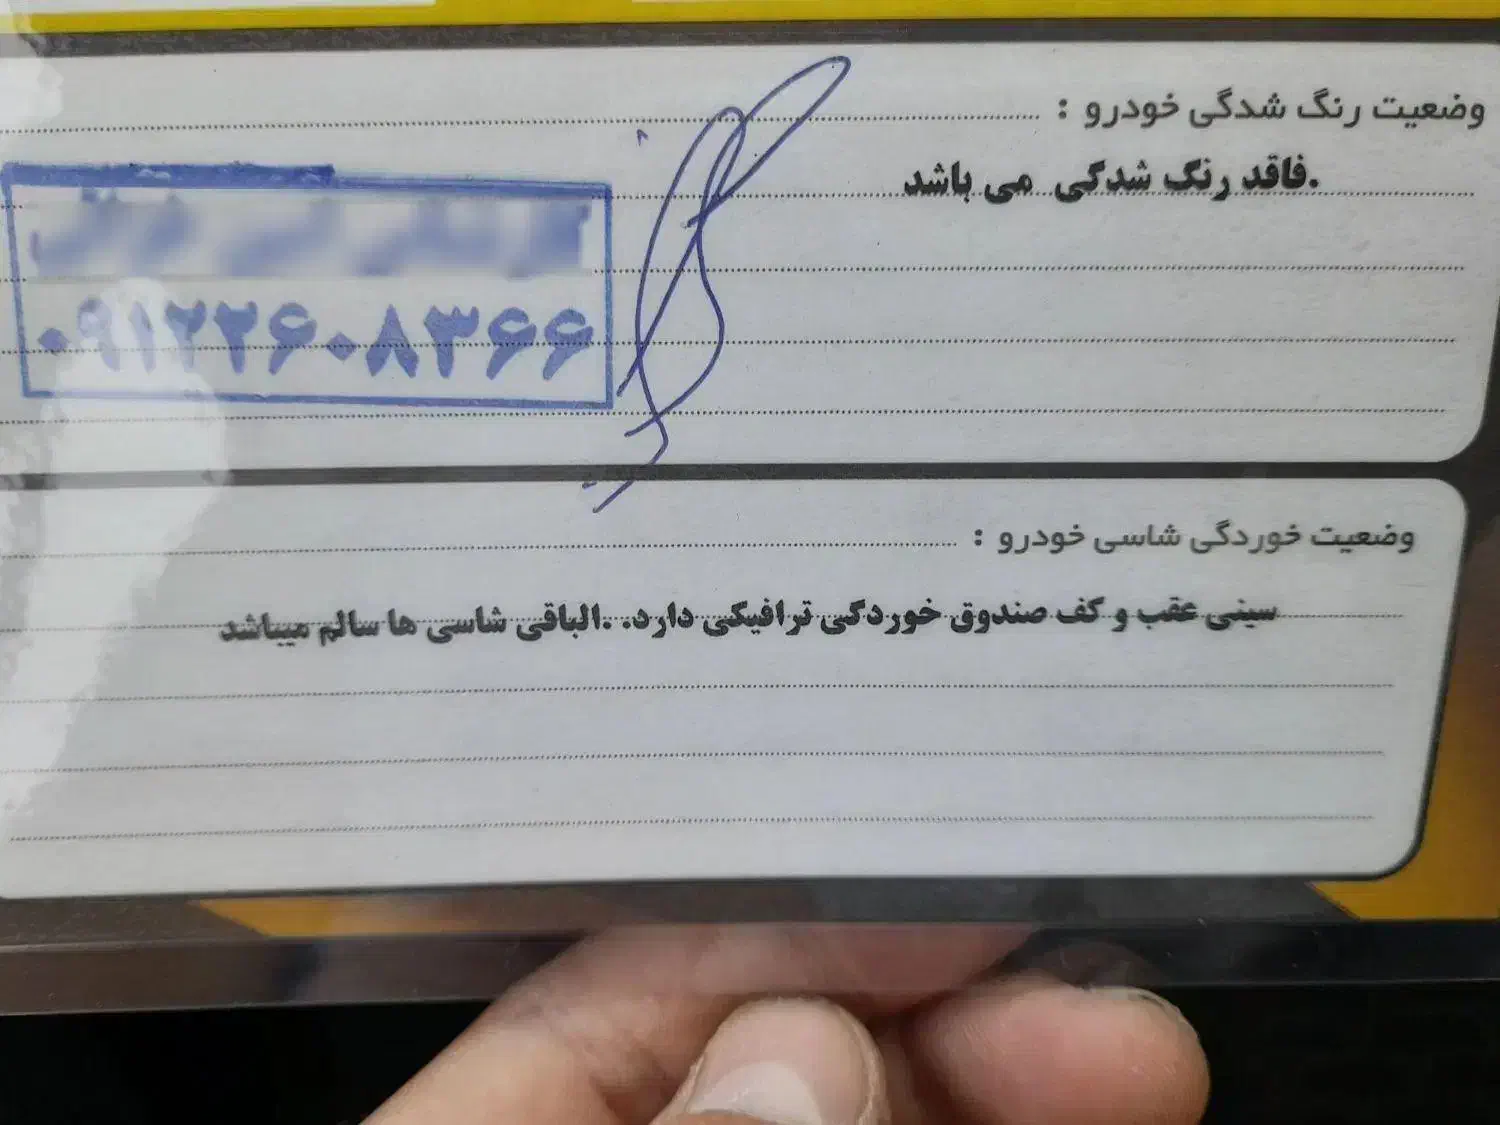 وضعیت رنگ شدگی خودرو :
فاقد رنگ شدگی می باشد.
۰۹۱۲۲۶۰۸۳۶۶
وضعیت خوردگی شاسی خودرو :
سینی عقب و کف صندوق خوردگی ترافیکی دارد. .الباقی شاسی ها سالم میباشد